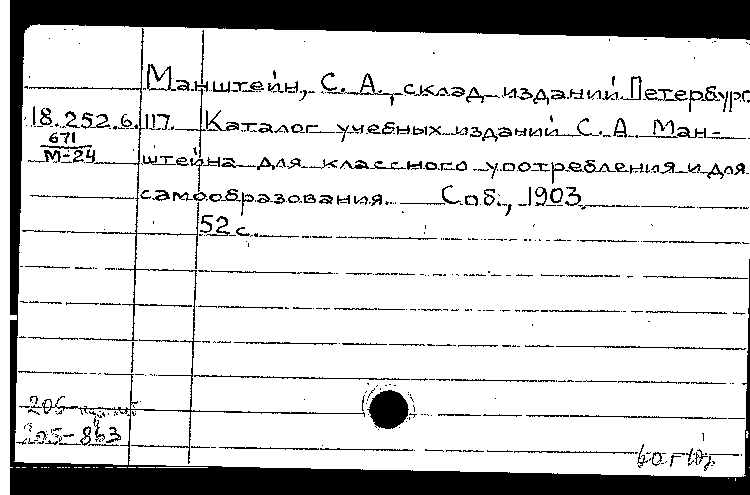 Манштейн, С. А., склад изданий Петербург
18.252.6.117. Каталог учебных изданий С. А. Ман-
671
М-24
штейна для классного употребления и для
самообразования. Спб., 1903.
52 с.
205-863